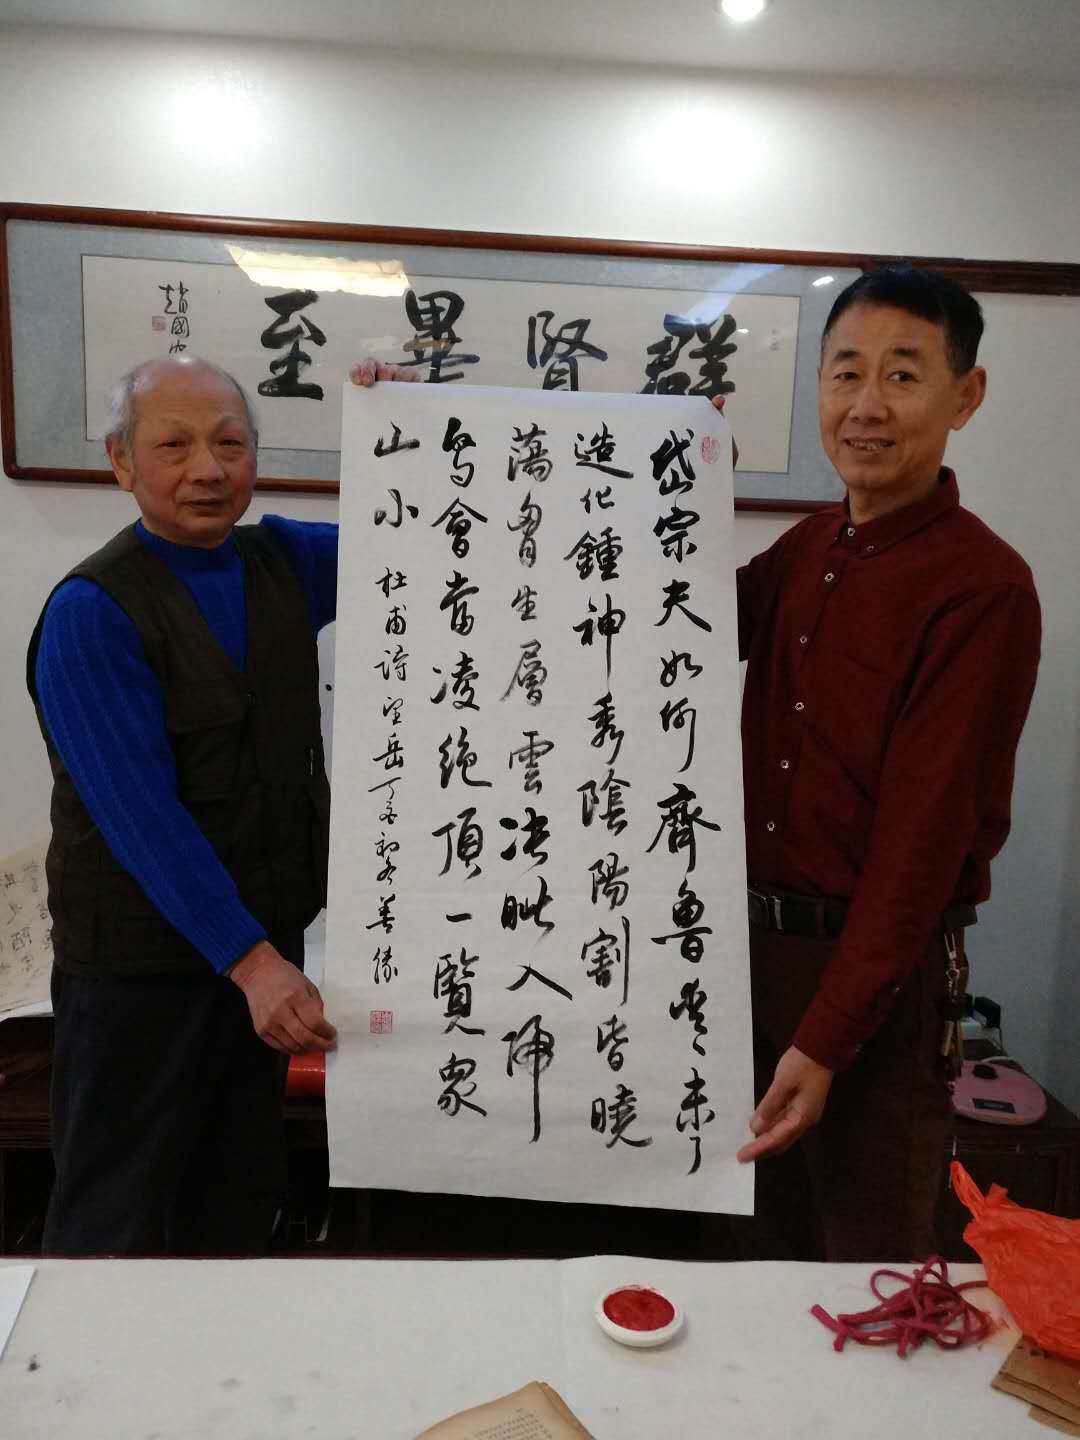 群賢畢至
趙國
岱宗夫如何齊魯青〻未了
造化鍾神秀陰陽割昏曉
蕩胷生層雲决眦入歸
鳥會當凌絶頂一覽眾
山小 杜甫詩望岳丁酉初冬善